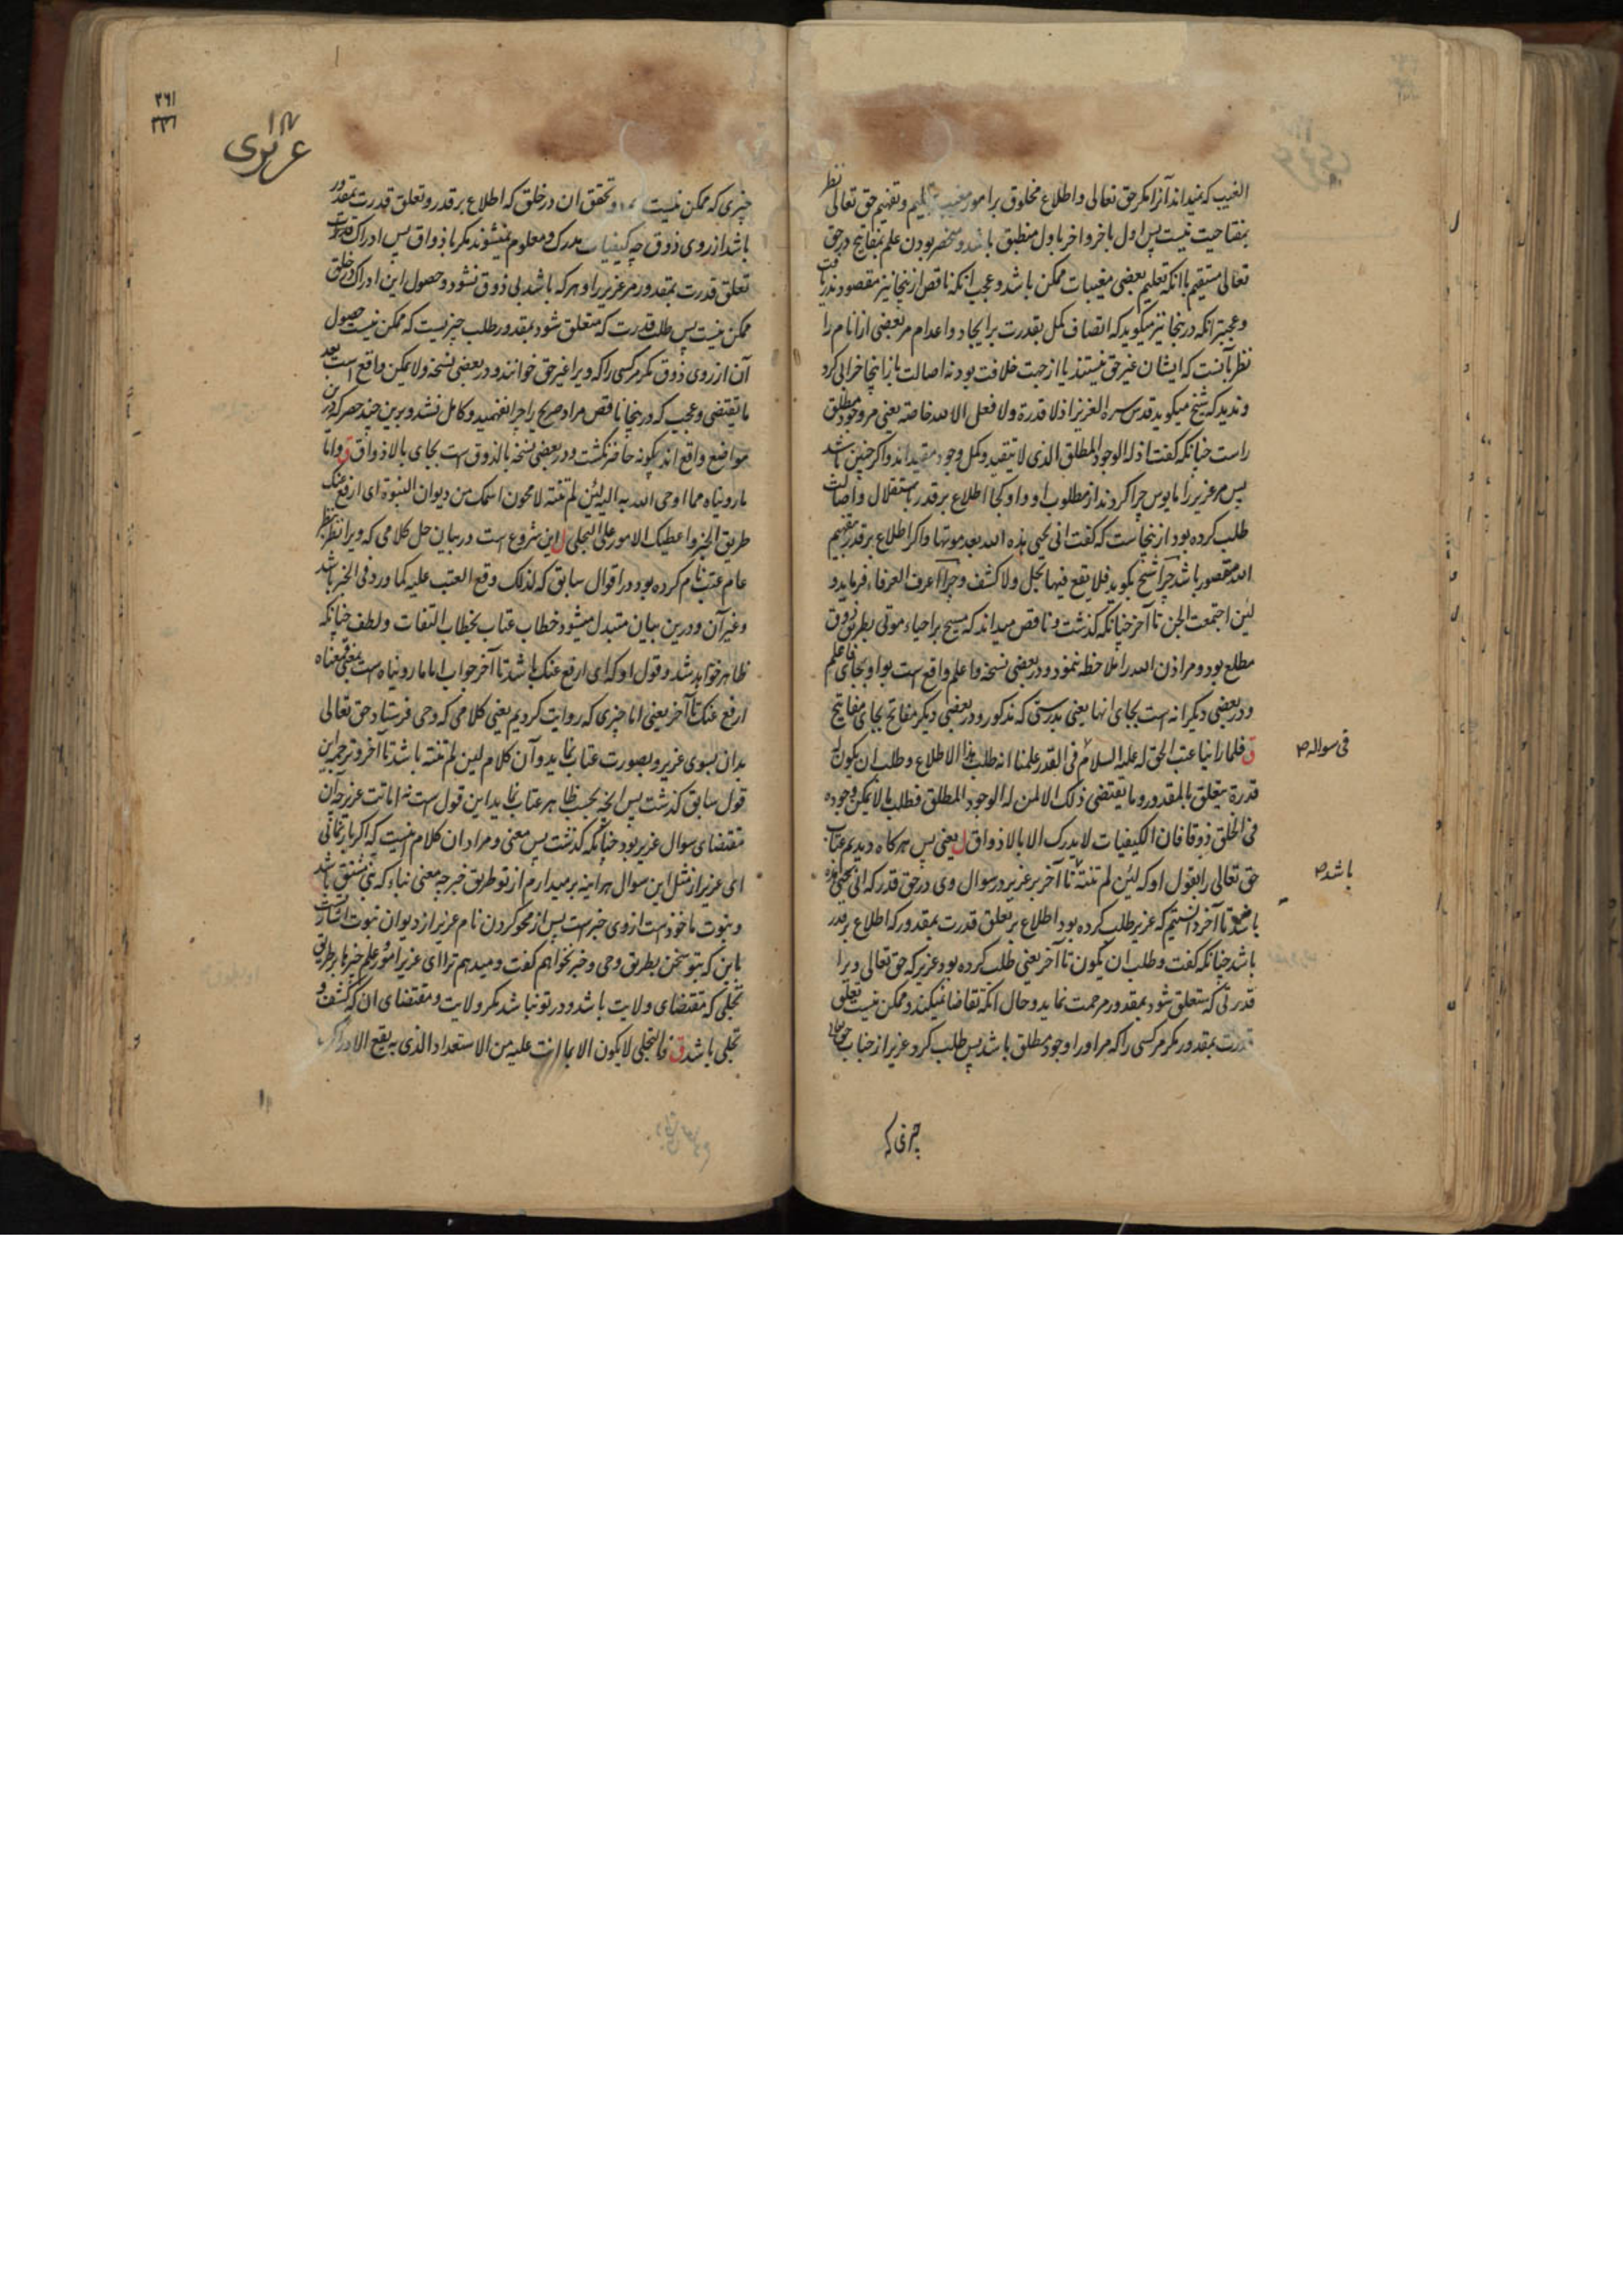 الغیب که نمیداند آنرا مکر حق تعالی و اطلاع مخلوق بر امور تعلیم و تفهیم حق تعالی نظر
بمفتاحیت نیست پس اول باخر و اخر باول منطبق باشد و منحصر بودن علم بمفاتیح در حق
تعالی مستقیم با انکه تعلیم بعضی مغیبات ممکن باشد و عجب انکه ناقص ازینجا نیز مقصود ندریافت
و عجبتر انکه درینجا نیز میکوید که اتصاف کمل بقدرت بر ایجاد و اعدام مر بعضی از انام را
نظر بآنست که ایشان غیر حق نیستند یا از جهت خلافت بود نه اصالت باز اینجا خرابی کرد
و ندید که شیخ میکوید قدس سره العزیز اذ لا قدرة ولا فعل الا لله خاصة یعنی مر وجود مطلق
راست چنانکه کفت اذ له الوجود المطلق الذی لا یتقید و کمل وجود مقید اند و اکر چنین باشد
پس مر عزیر را مایوس چرا کردند از مطلوب او و او کجا اطلاع بر قدر باستقلال و اصالت
طلب کرده بود ازینجاست که کفت انی یحیی هذه الله بعد موتها و اکر اطلاع بر قدر تفهیم
الله مقصور باشد چرا شیخ بکوید فلا یقع فیها تجل ولا کشف و چرا اعرف العرفاء فرماید و
لئن اجتمعت الجن تا آخر چنانکه کذشت و ناقص میداند که مسیح بر احیاء موتی بطریق ذوق
مطلع بود و مر اذن الله را ملاحظه ننمود و در بعضی نسخه و اعلم واقع است بواو بجای فاعلم
و در بعضی دیکر انه است بجای انها یعنی بدرستی که مذکور و در بعضی دیکر مفاتح بجای مفاتیح
ق فلما راینا عتب الحق له علیه السلام فی القدر علمنا انه طلب هذا الاطلاع و طلب ان یکون له
فی سواله
قدرة یتعلق بالمقدور و ما یقتضی ذلک الا لمن له الوجود المطلق فطلب ما لا یمکن وجوده
فی الخلق ذوقا فان الکیفیات لا یدرک الا بالاذواق ل یعنی پس هر کاه دیدیم عتاب
حق تعالی را بقول او که لئن لم تنته تا آخر بر عزیر در سوال وی در حق قدر که انی یحیی هذه
باشد
تا آخر دانستیم که عزیر طلب کرده بود اطلاع بر تعلق قدرت بمقدور که اطلاع بر قدر
باشد چنانکه کفت و طلب ان یکون تا آخر یعنی طلب کرده بود عزیر که حق تعالی ویرا
قدرتی که متعلق شود بمقدور مرحمت نماید و حال انکه تقاضا نمیکند و ممکن نیست تعلق
قدرت بمقدور مکر مر کسی را که مر او را وجود مطلق باشد پس طلب کرد عزیر از جناب حق تعالی
چیزی که
۳۶۱
۳۳۶
عزیری
چیزی که ممکن نیست وجود و تحقق ان در خلق که اطلاع بر قدر و تعلق قدرت بمقدور
باشد از روی ذوق چه کیفیات مدرک و معلوم نمیشوند مکر باذواق پس ادراک کیفیت
تعلق قدرت بمقدور مر عزیر را و هر که باشد بی ذوق نشود و حصول این ادراک در خلق
ممکن نیست پس طلب قدرت که متعلق شود بمقدور طلب چیزیست که ممکن نیست حصول
آن از روی ذوق مکر مر کسی را که ویرا غیر حق خوانند و در بعضی نسخه و لا یمکن واقع است بعد
ما یقتضی و عجب که درینجا ناقص مراد صریح را چرا نفهمید و کامل نشد و برین چند حصر که درین
مواضع واقع اند چکونه حاضر نکشت و در بعضی نسخه بالذوق است بجای بالاذواق ق و اما
ما رویناه مما اوحی الله به الیه لئن لم تنته لامحون اسمک من دیوان النبوة ای ارفع عنک
طریق الخبر و اعطیک الامور علی التجلی ل این شروع است در بیان حل کلامی که ویرا نظر بنظر
عام عتب نام کرده بود در اقوال سابق که لذلک وقع العتب علیه کما ورد فی الخبر باشد
و غیر آن و درین بیان متبدل میشود خطاب عتاب بخطاب التفات و لطف چنانکه
ظاهر خواهد شد و قول او که ای ارفع عنک باشد تا آخر جواب اما ما رویناه است بمعنی فمعناه
ارفع عنک تا آخر یعنی اما چیزی که روایت کردیم یعنی کلامی که وحی فرستاد حق تعالی
بدان بسوی عزیر و بصورت عتاب نماید و آن کلام لئن لم تنته باشد تا آخر و ترجمه این
قول سابق کذشت پس انچه بحسب ظاهر عتاب نماید این قول است نه اماتت عزیر چه آن
مقتضای سوال عزیر بود چنانکه کذشت پس معنی و مراد ان کلام اینست که اکر باز نمانی
ای عزیر از مثل این سوال هر اینه بر میدارم از تو طریق خبر چه معنی نباء که نبی مشتق باشد
و نبوت ماخوذ است از وی خبر است پس از محو کردن نام عزیر از دیوان نبوت اشارتست
باین که بتو سخن بطریق وحی و خبر نخواهم کفت و میدهم ترا ای عزیر امور و علم چیزها بر طریق
تجلی که مقتضای ولایت باشد و در تو نباشد مکر ولایت و مقتضای ان که کشف و
تجلی باشد ق فالتجلی لا یکون الا بما انت علیه من الاستعداد الذی به یقع الادراک